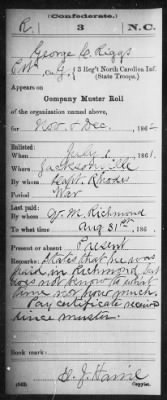 (Confederate.)
R. 3 N.C.
George C. Riggs
Co. G, 3 Reg't North Carolina Inf.
(State Troops.)
Appears on
Company Muster Roll
of the organization named above,
for Nov. & Dec., 1862
Enlisted:
When July 1, 1861.
Where Jacksonville
By whom Capt. Rhodes
Period War
Last paid:
By whom W. M. Richmond
To what time Aug 31st, 186
Present or absent Present
Remarks: States that he was
paid in Richmond but
does not know to what
time nor how much.
Pay certificate received
since muster.
Book mark:
(642) Copyist.